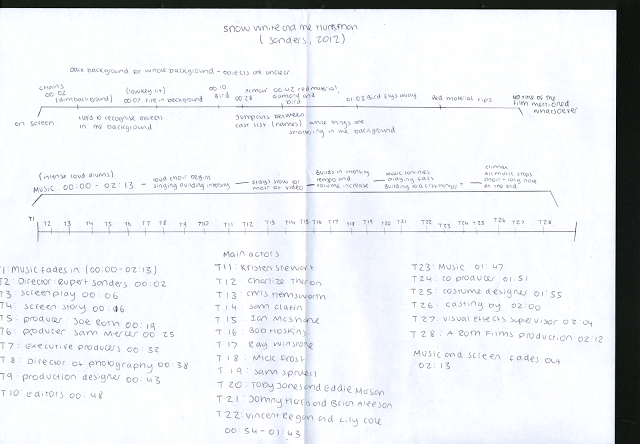 Snow White and the Huntsman
(Sanders, 2012)
Dark background for whole background - objects are unclear
chains 00:02
(dim background)
(lowkey lit)
00:07 fire in background
00:10 Bird
00:28
Armour 00:42 red material, diamond and bird
01:03 Bird flys away
Red material rips
no title of the film mentioned whatsoever
on screen
Hard to recognise objects in the background
Jumpcuts between cast list (names) while things are shattering in the background
(intense loud drums)
Music: 00:00 - 02:13 - loud choir begins singing building intensity - stays slow for most of video - Builds in intensity tempo and volume increase - music continues playing fast building to a - climax music stops choir - long note at the end
T1 T2 T3 T4 T5 T6 T7 T8 T9 T10 T11 T12 T13 T14 T15 T16 T17 T18 T19 T20 T21 T22 T23 T24 T25 T26 T27 T28
T1: Music fades in (00:00-02:13)
T2: Director: Rupert Sanders 00:02
T3: screenplay 00:06
T4: screen story 00:16
T5: producer Joe Roth 00:19
T6: producer Sam Mercer 00:25
T7: Executive producers 00:32
T8: Director of photography 00:38
T9: production designer 00:43
T10: editors 00:48
Main actors
T11: Kristen Stewart
T12: Charlize Theron
T13: Chris Hemsworth
T14: Sam Claflin
T15: Ian McShane
T16: Bob Hoskins
T17: Ray Winstone
T18: Nick Frost
T19: Sam Spruell
T20: Toby Jones and Eddie Marsan
T21: Johnny Harris and Brian Gleeson
T22: Vincent Regan and Lily Cole
00:54-01:43
T23: Music 01:47
T24: co producer 01:51
T25: costume designer 01:55
T26: casting by 02:00
T27: visual effects supervisor 02:04
T28: A Roth Films production 02:12
Music and screen fades out
02:13